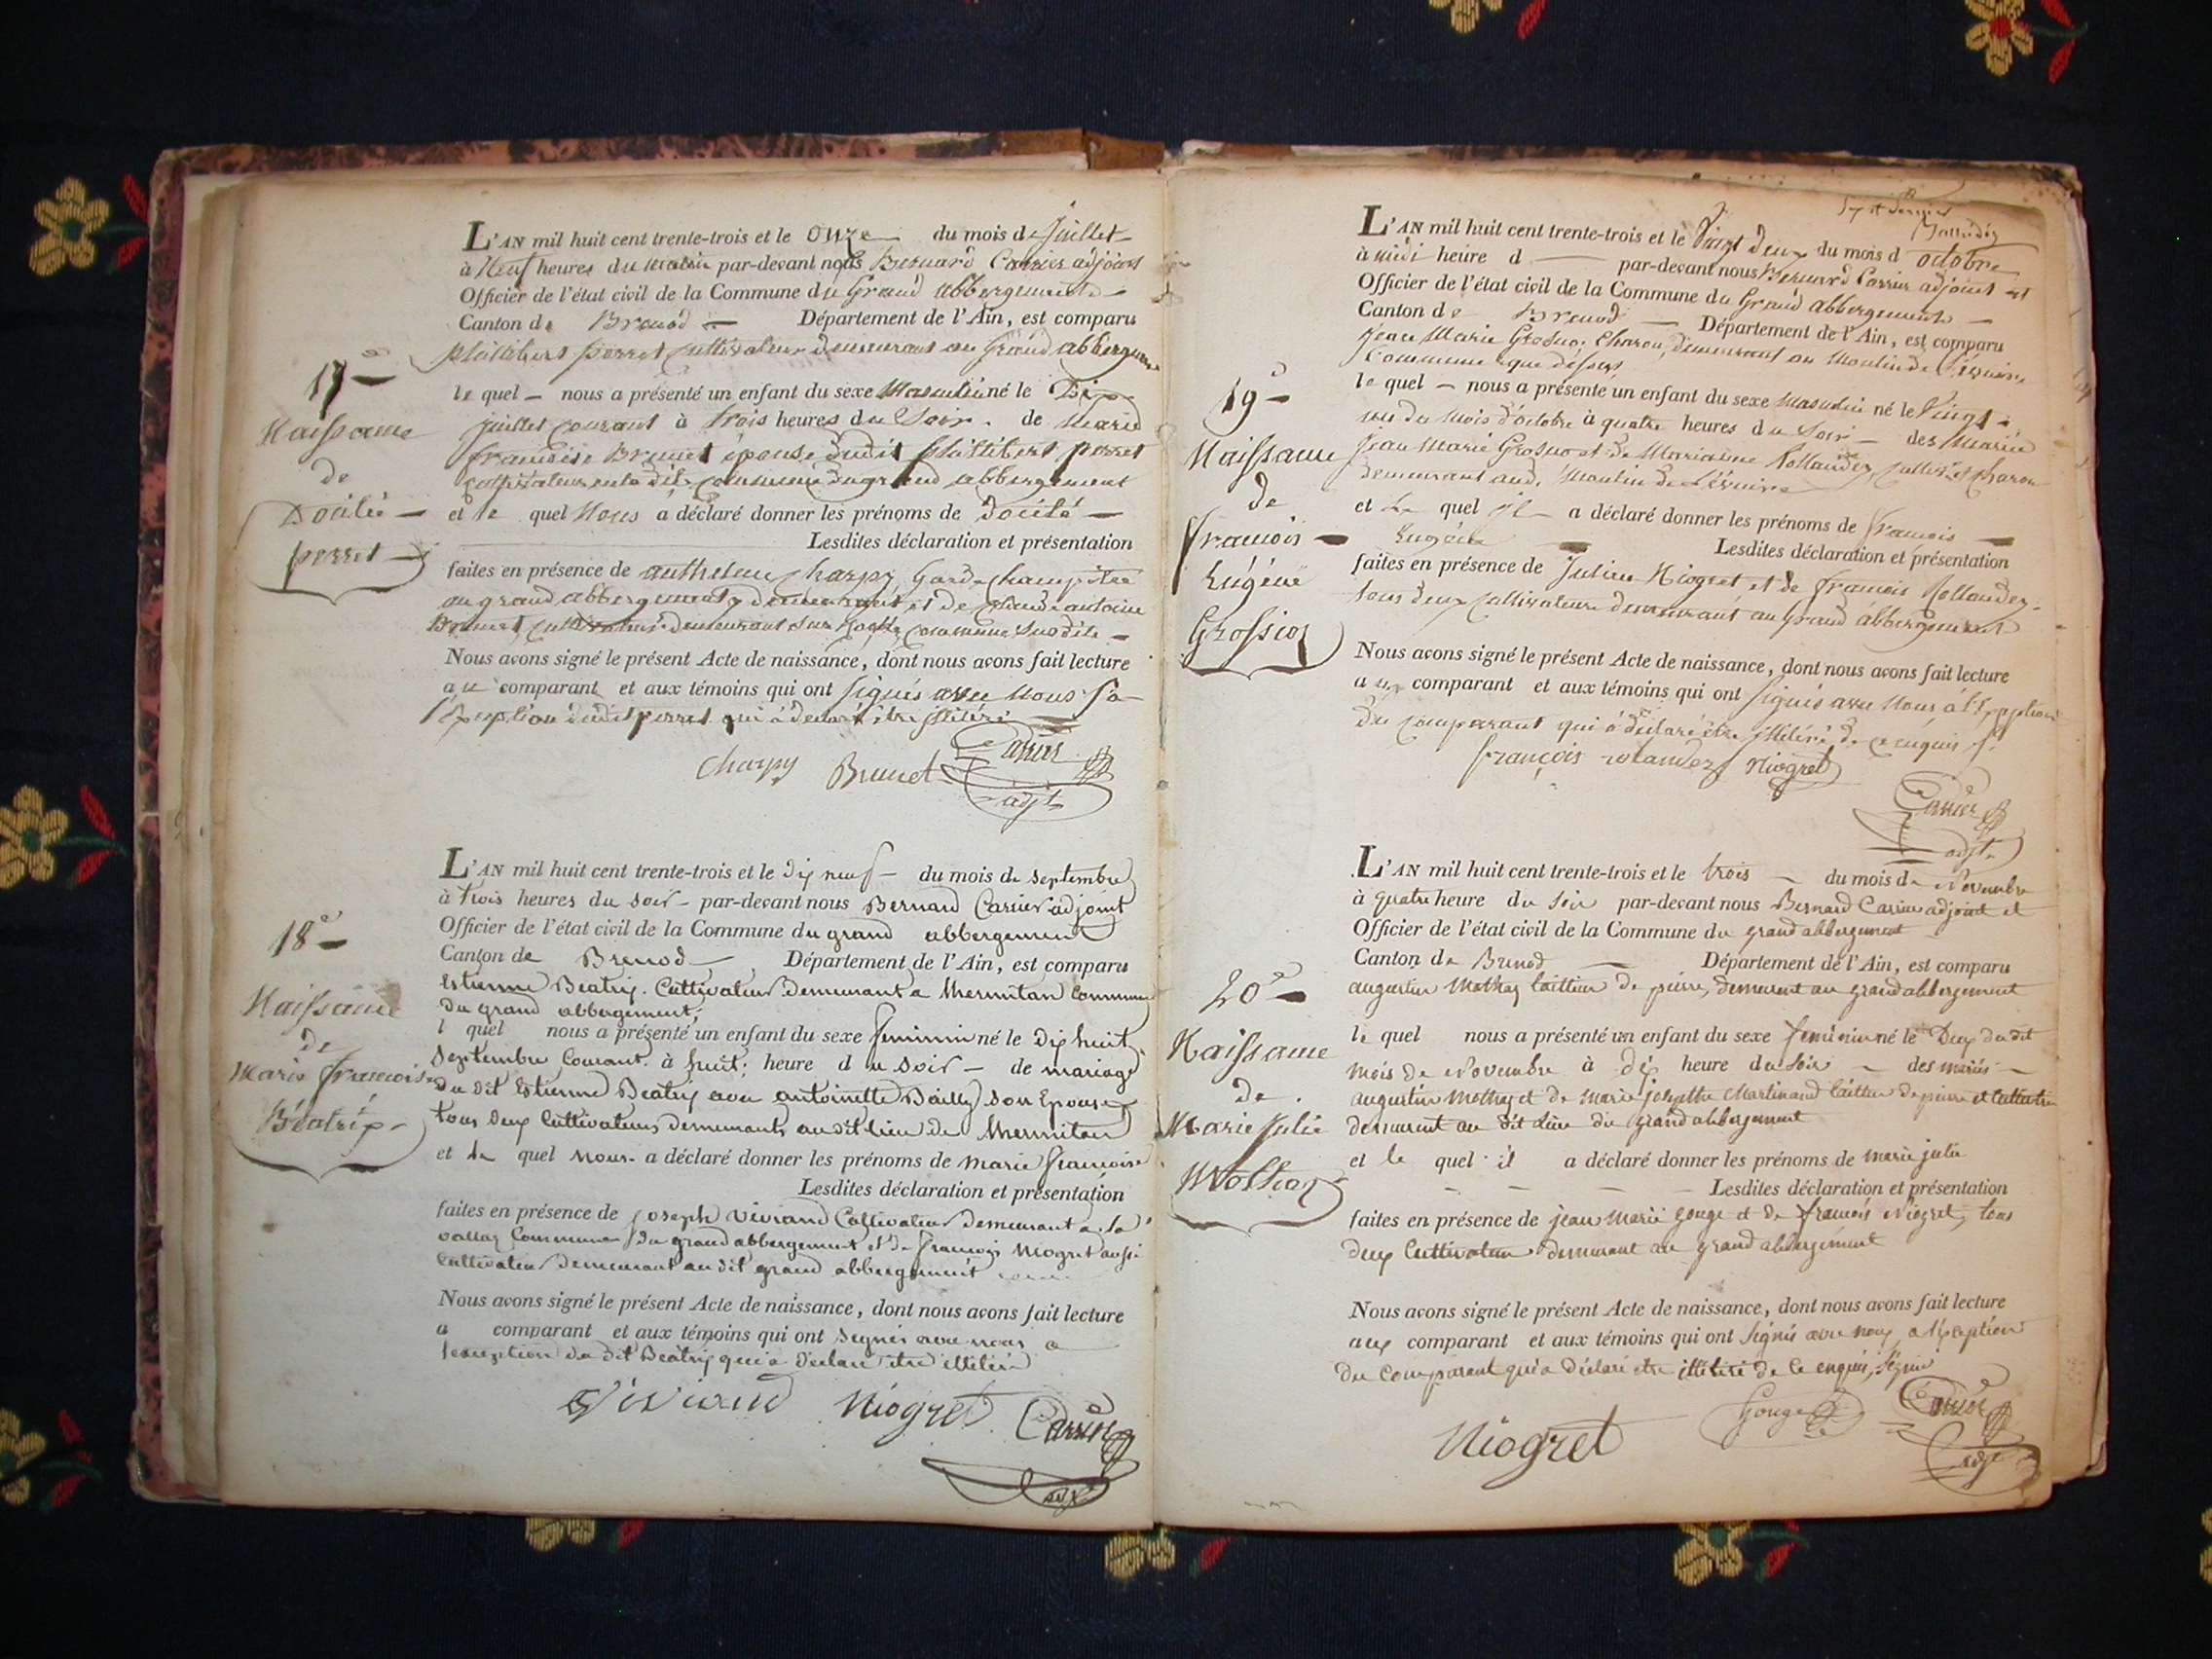 L'AN mil huit cent trente-trois et le onze du mois de juillet
à Neuf heures du matin par-devant nous Bernard Carrier adjoint
Officier de l'état civil de la Commune du Grand abbergement
Canton de Brenod Département de l'Ain, est comparu
phillibert perret cultivateur demeurant au Grand abbergement
17e
Naissance
de
Docile
perret
le quel nous a présenté un enfant du sexe Masculin né le Dix
juillet courant à trois heures du Soir de Marie
francoise Brunet épouse dudit phillibert perret
cultivateurs commune du grand abbergement
et le quel Nous a déclaré donner les prénoms de docile
Lesdites déclaration et présentation
faites en présence de anthelme charpy Garde champêtre
au grand abbergement y demeurant et de Claude antoine
Brunet cultivateur demeurant sur commune susdite
Nous avons signé le présent Acte de naissance, dont nous avons fait lecture
au comparant et aux témoins qui ont signés avec Nous
l'exception dudit perret qui a déclaré être illitéré
charpy Brunet Carrier
adjt
18e
Naissance
de
Marie francoise
Béatrix
L'AN mil huit cent trente-trois et le dix neuf du mois de septembre
à trois heures du soir par-devant nous Bernard Carrier adjoint
Officier de l'état civil de la Commune du grand abbergement
Canton de Brenod Département de l'Ain, est comparu
Estienne Beatrix Cultivateur demeurant a lhermitan commune
du grand abbergement
l quel nous a présenté un enfant du sexe feminin né le dix huit
septembre Courant à huit heure du soir de mariage
du dit Estienne Beatrix avec antoinette Bailly son Epouse
tous deux Cultivateurs demeurants au dit lieu de lhermitan
et le quel nous a déclaré donner les prénoms de marie francoise
Lesdites déclaration et présentation
faites en présence de joseph viviand Cultivateur demeurant a la
vallaz Commune du grand abbergement et de francois Niogret aussi
Cultivateur demeurant au dit grand abbergement
Nous avons signé le présent Acte de naissance, dont nous avons fait lecture
a comparant et aux témoins qui ont signés avec nous a
lexception du dit Beatrix qui a déclaré être illitéré
Viviand Niogret Carrier
adjt
L'AN mil huit cent trente-trois et le Vingt deux du mois d octobre
à midi heure d par-devant nous Bernard Carrier adjoint et
Officier de l'état civil de la Commune du Grand abbergement
Canton de Brenod Département de l'Ain, est comparu
Jean Marie charon, demeurant au Moulin de
Commune que dessus
19e
Naissance
de
francois
Eugéne
le quel nous a présenté un enfant du sexe masculin né le Vingt
un du mois d'octobre à quatre heures du Soir des Mariés
Jean Marie et de Marianne Rollandez
demeurant aud. Moulin de
et le quel il a déclaré donner les prénoms de francois
Eugéne
Lesdites déclaration et présentation
faites en présence de Julien Niogret et de francois Rollandez
tous deux cultivateurs demeurant au Grand abbergement
Nous avons signé le présent Acte de naissance, dont nous avons fait lecture
au comparant et aux témoins qui ont signés avec Nous à l'exception
du comparant qui a déclaré être illitéré de ce enquis
françois rolandez Niogret
Carrier
adjt
20e
Naissance
de
Marie Julie
Mathaz
L'AN mil huit cent trente-trois et le trois du mois de Novembre
à quatre heure du soir par-devant nous Bernard Carrier adjoint et
Officier de l'état civil de la Commune du grand abbergement
Canton de Brenod Département de l'Ain, est comparu
augustin Mathaz tailleur de pierre, demeurant au grand abbergement
le quel nous a présenté un enfant du sexe feminin né le Deux du dit
mois de Novembre à dix heure du soir des mariés
augustin Mathaz et de marie josephte Martinand tailleur de pierre et cultivatrice
demeurant au dit lieu du grand abbergement
et le quel il a déclaré donner les prénoms de marie julie
Lesdites déclaration et présentation
faites en présence de jean marie gouge et de francois Niogret, tous
deux Cultivateur demeurant au grand abbergement
Nous avons signé le présent Acte de naissance, dont nous avons fait lecture
aux comparant et aux témoins qui ont signés avec nous a l'exception
du comparant qui a déclaré etre illitéré de ce enquis
Niogret Gouge Carrier
adjt